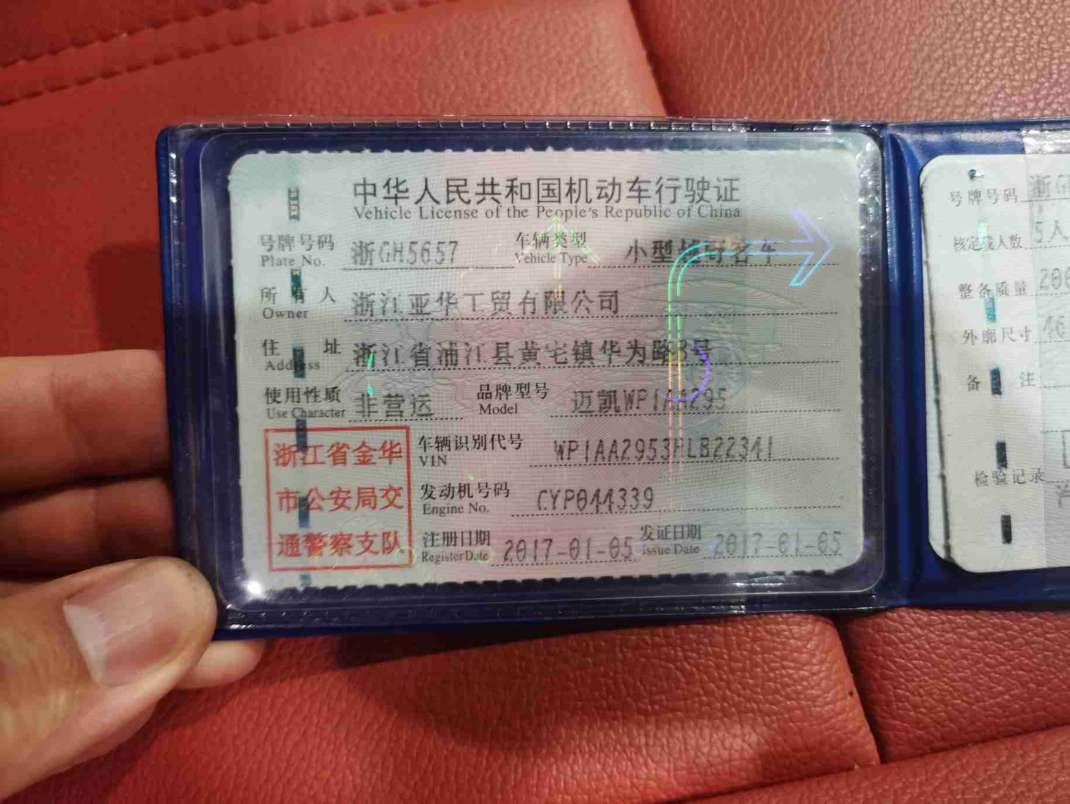 中华人民共和国机动车行驶证
Vehicle License of the People's Republic of China
号牌号码 浙GH5657 车辆类型 小型越野客车
Plate No. Vehicle Type
所有人 浙江亚华工贸有限公司
Owner
住址 浙江省浦江县黄宅镇华为路 号
Address
使用性质 非营运 品牌型号 迈凯WP1AA295
Use Character Model
浙江省金华
市公安局交
通警察支队
车辆识别代号 WP1AA2953HLB22341
VIN
发动机号码 CYP044339
Engine No.
注册日期 2017-01-05 发证日期 2017-01-05
Register Date Issue Date
号牌号码 浙G
核定载人数 5人
整备质量 200
外廓尺寸 46
备注
检验记录